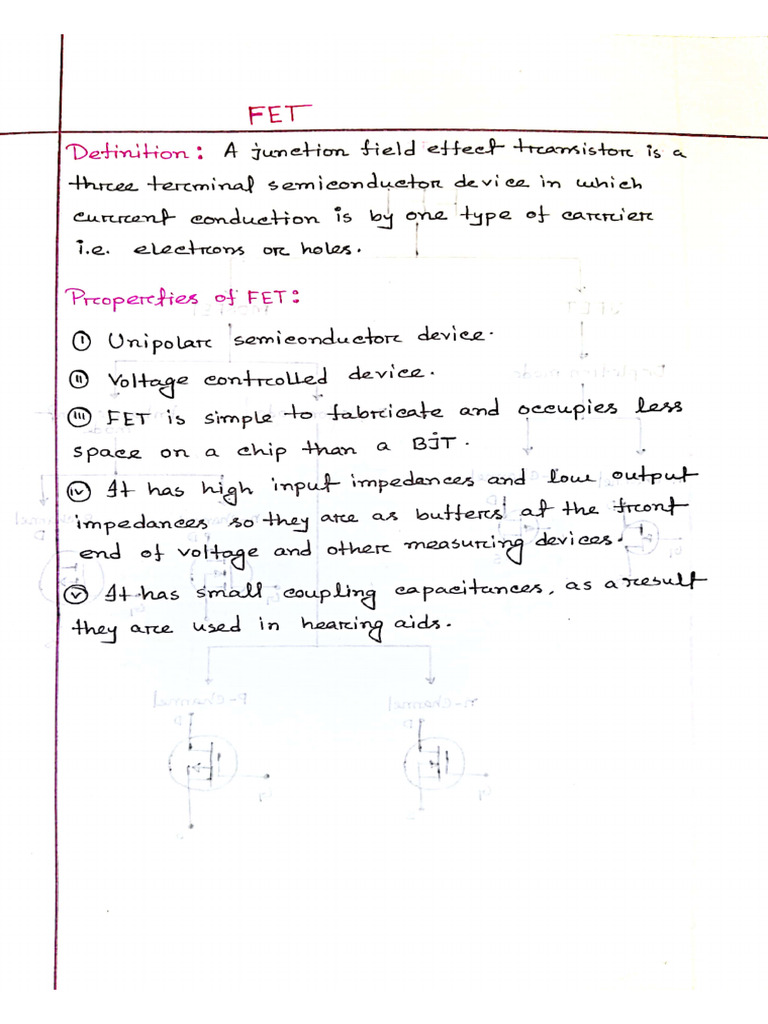 FET
Definition: A junction field effect transistor is a
three terminal semiconductor device in which
current conduction is by one type of carrier
i.e. electrons or holes.
Properties of FET:
(i) Unipolar semiconductor device.
(ii) Voltage controlled device.
(iii) FET is simple to fabricate and occupies less
space on a chip than a BJT.
(iv) It has high input impedances and low output
impedances so they are as buffers at the front
end of voltage and other measuring devices.
(v) It has small coupling capacitances, as a result
they are used in hearing aids.
P-channel
n-channel
D
D
G
G